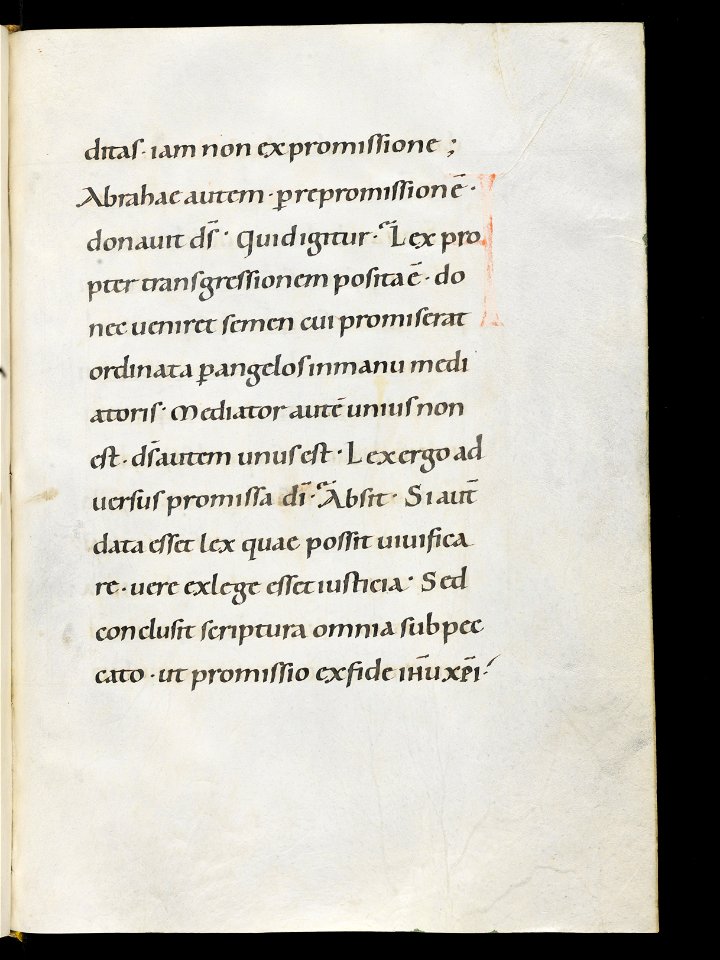 ditas· iam non ex promissione ;
Abrahae autem · p̱repromissionē ·
donauit d̄s · Quid igitur · Lex pro
pter transgressionem posita ē · do
nec ueniret semen cui promiserat
ordinata ꝑ angelos in manu medi
atoris · Mediator autē unius non
est · d̄s autem unus est · Lex ergo ad
uersus promissa d̄i · Absit · Si aut̄
data esset lex quae possit uiuifica
re · uere ex lege esset iusticia · Sed
conclusit scriptura omnia sub pec
cato · ut promissio ex fide ih̄u xp̄i ·